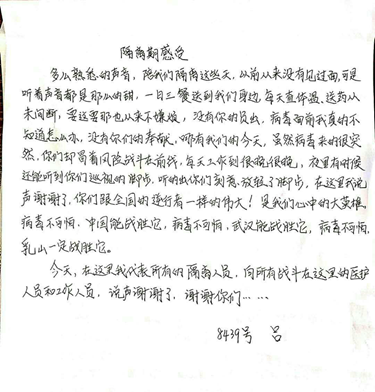 隔离期感受
多么熟悉的声音，陪我们隔离这些天，以前从来没有见过面，可是
听着声音都是那么的甜，一日三餐送到我们身边，每天查体温、送药从
未间断，要这要那也从来不嫌烦，没有你们的负出，病毒面前我真的不
知道怎么办，没有你们的奉献，哪有我们的今天，虽然病毒来的很突
然，你们却冒着风险战斗在前线，每天工作到很晚很晚，夜里有时候
还能听到你们巡视的脚步，听的出你们刻意放轻了脚步，在这里我说
声谢谢了，你们跟全国的逆行者一样的伟大！是我们心中的大英雄，
病毒不可怕，中国能战胜它，病毒不可怕，武汉能战胜它，病毒不可怕
乳山一定战胜它。
今天，在这里我代表所有的隔离人员，向所有战斗在这里的医护
人员和工作人员，说声谢谢了，谢谢你们……
8439号 吕